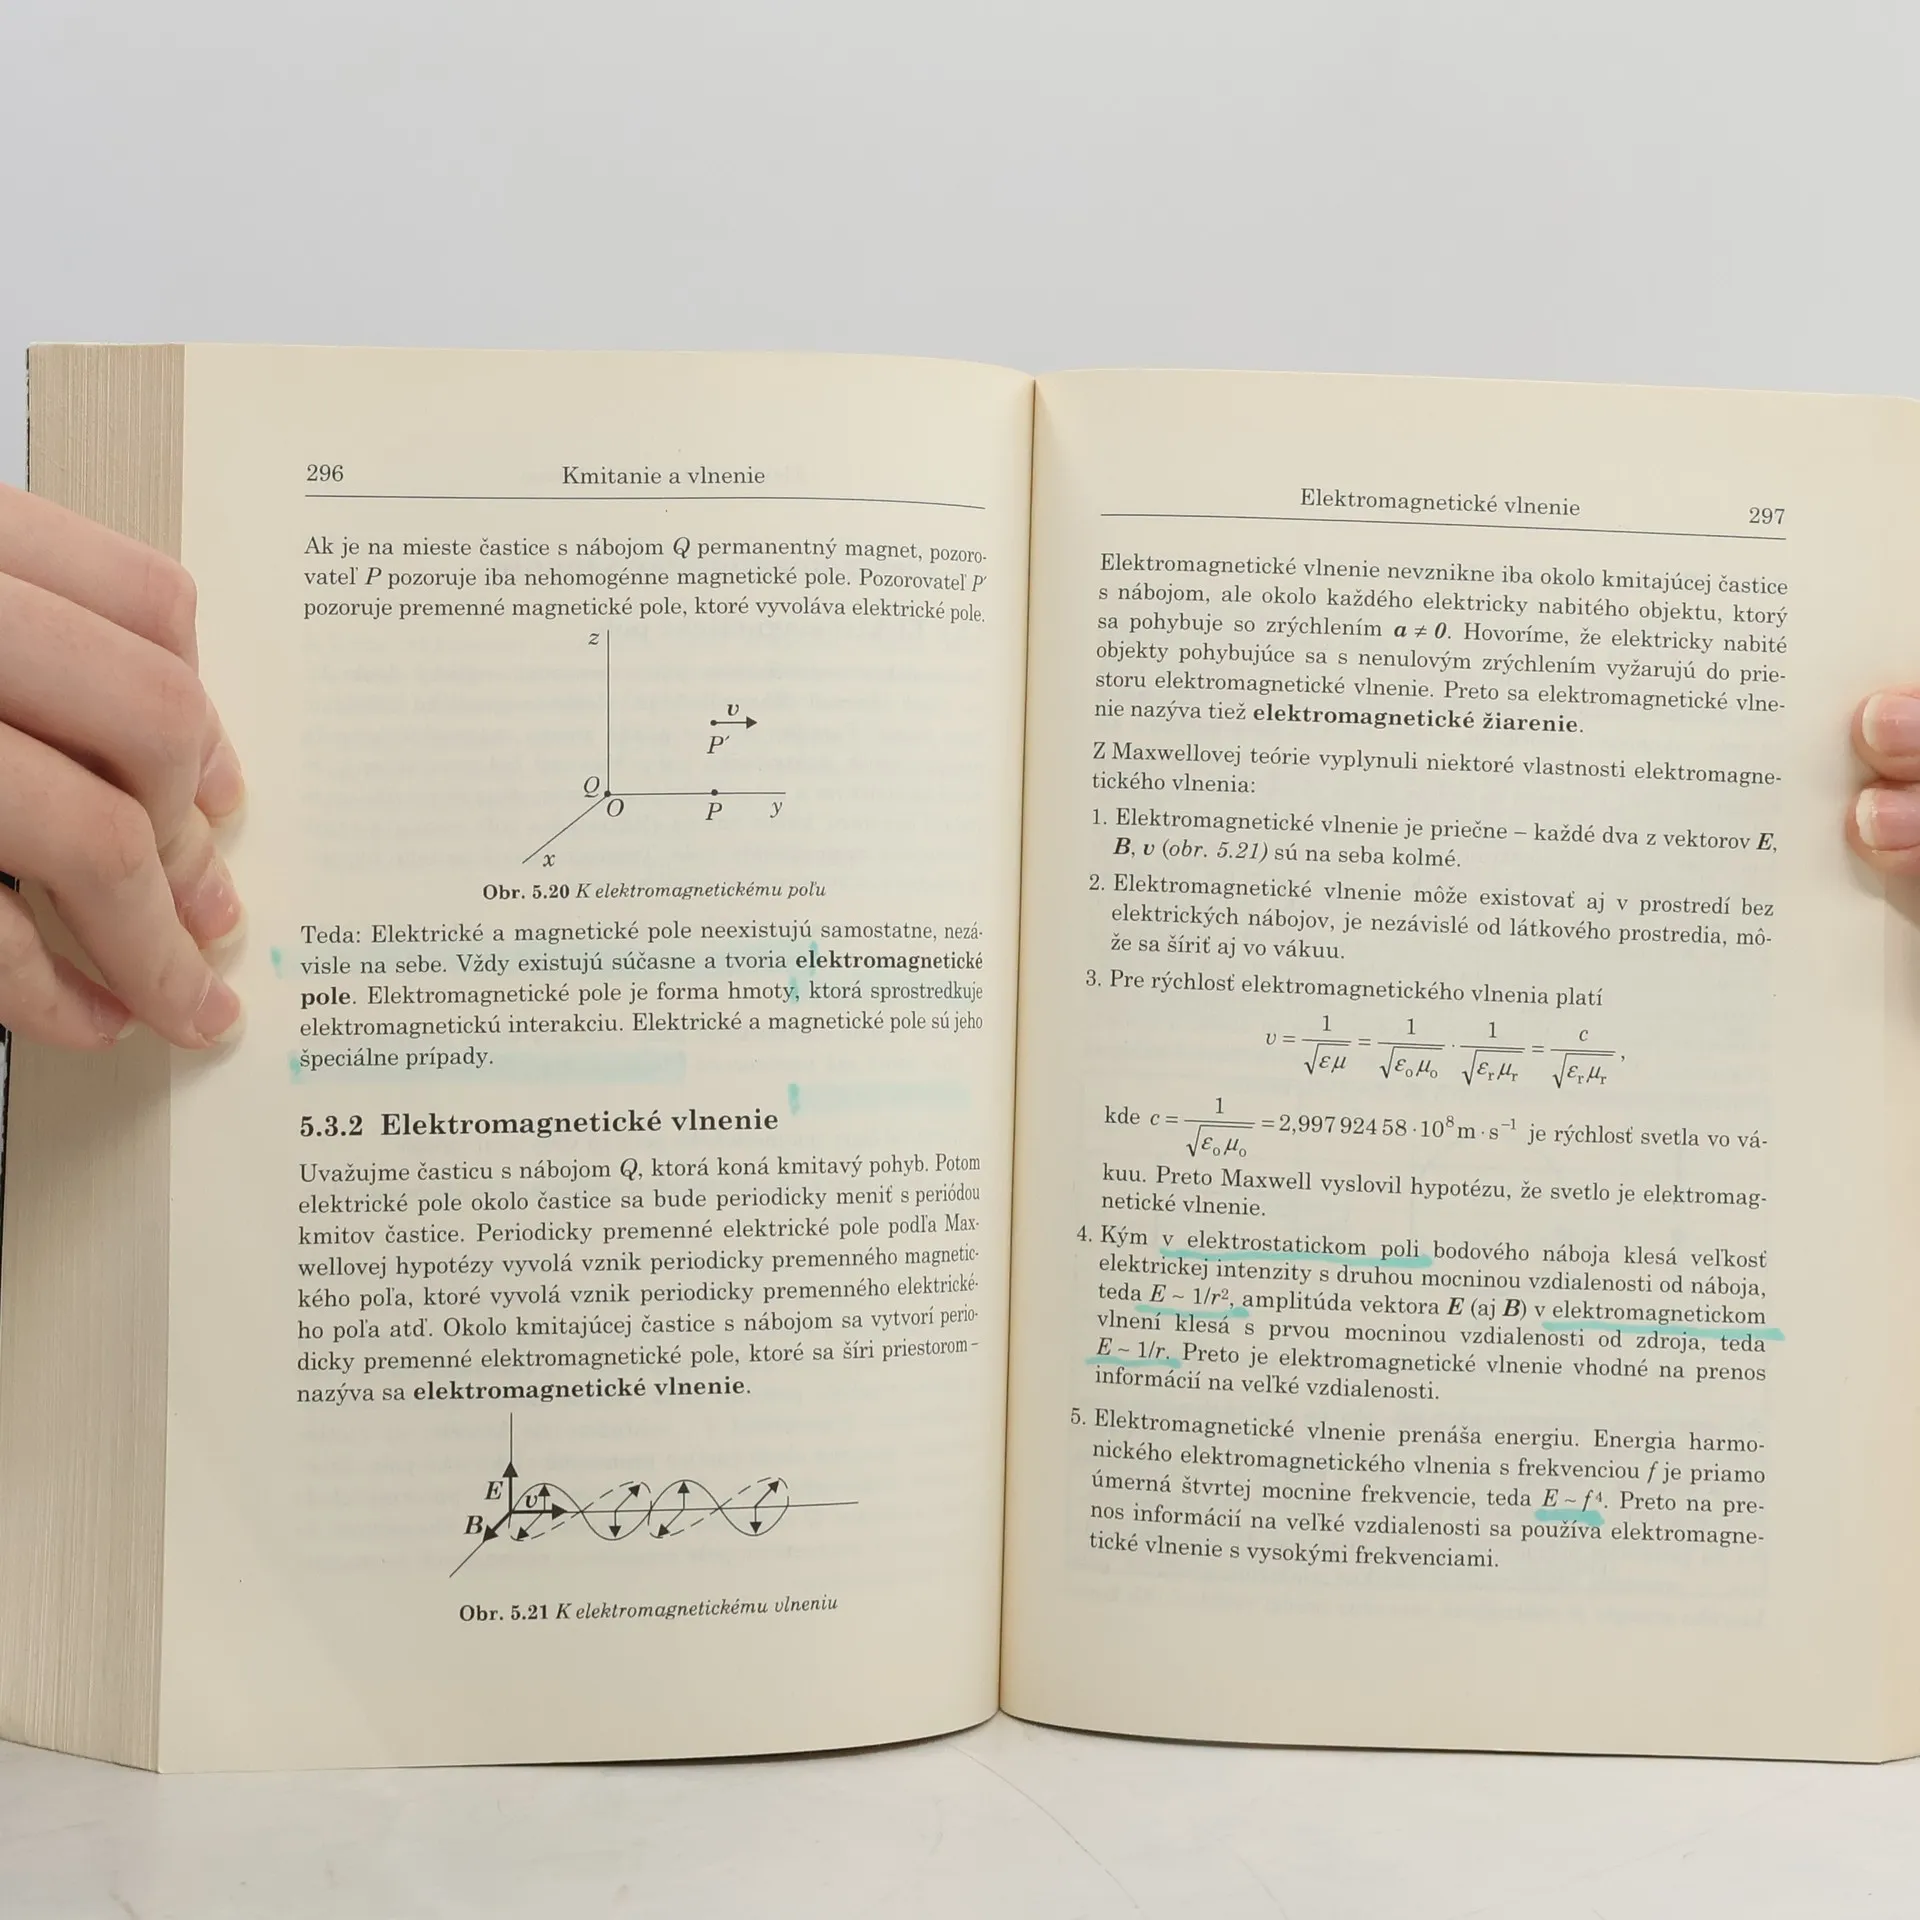 296
Kmitanie a vlnenie
Ak je na mieste častice s nábojom Q permanentný magnet, pozoro-
vateľ P pozoruje iba nehomogénne magnetické pole. Pozorovateľ P′
pozoruje premenné magnetické pole, ktoré vyvoláva elektrické pole.
z
υ
P′
Q
O
P
y
x
Obr. 5.20 K elektromagnetickému poľu
Teda: Elektrické a magnetické pole neexistujú samostatne, nezá-
visle na sebe. Vždy existujú súčasne a tvoria elektromagnetické
pole. Elektromagnetické pole je forma hmoty, ktorá sprostredkuje
elektromagnetickú interakciu. Elektrické a magnetické pole sú jeho
špeciálne prípady.
5.3.2 Elektromagnetické vlnenie
Uvažujme časticu s nábojom Q, ktorá koná kmitavý pohyb. Potom
elektrické pole okolo častice sa bude periodicky meniť s periódou
kmitov častice. Periodicky premenné elektrické pole podľa Max-
wellovej hypotézy vyvolá vznik periodicky premenného magnetic-
kého poľa, ktoré vyvolá vznik periodicky premenného elektrické-
ho poľa atď. Okolo kmitajúcej častice s nábojom sa vytvorí perio-
dicky premenné elektromagnetické pole, ktoré sa šíri priestorom –
nazýva sa elektromagnetické vlnenie.
E
υ
B
Obr. 5.21 K elektromagnetickému vlneniu
Elektromagnetické vlnenie
297
Elektromagnetické vlnenie nevznikne iba okolo kmitajúcej častice
s nábojom, ale okolo každého elektricky nabitého objektu, ktorý
sa pohybuje so zrýchlením a ≠ 0. Hovoríme, že elektricky nabité
objekty pohybujúce sa s nenulovým zrýchlením vyžarujú do prie-
storu elektromagnetické vlnenie. Preto sa elektromagnetické vlne-
nie nazýva tiež elektromagnetické žiarenie.
Z Maxwellovej teórie vyplynuli niektoré vlastnosti elektromagne-
tického vlnenia:
1. Elektromagnetické vlnenie je priečne – každé dva z vektorov E,
B, υ (obr. 5.21) sú na seba kolmé.
2. Elektromagnetické vlnenie môže existovať aj v prostredí bez
elektrických nábojov, je nezávislé od látkového prostredia, mô-
že sa šíriť aj vo vákuu.
3. Pre rýchlosť elektromagnetického vlnenia platí
υ = 1/√εμ = 1/√ε₀μ₀ · 1/√εᵣμᵣ = c/√εᵣμᵣ ,
kde c = 1/√ε₀μ₀ = 2,997 924 58 · 10⁸ m · s⁻¹ je rýchlosť svetla vo vá-
kuu. Preto Maxwell vyslovil hypotézu, že svetlo je elektromag-
netické vlnenie.
4. Kým v elektrostatickom poli bodového náboja klesá veľkosť
elektrickej intenzity s druhou mocninou vzdialenosti od náboja,
teda E ~ 1/r², amplitúda vektora E (aj B) v elektromagnetickom
vlnení klesá s prvou mocninou vzdialenosti od zdroja, teda
E ~ 1/r. Preto je elektromagnetické vlnenie vhodné na prenos
informácií na veľké vzdialenosti.
5. Elektromagnetické vlnenie prenáša energiu. Energia harmo-
nického elektromagnetického vlnenia s frekvenciou f je priamo
úmerná štvrtej mocnine frekvencie, teda E ~ f⁴. Preto na pre-
nos informácií na veľké vzdialenosti sa používa elektromagne-
tické vlnenie s vysokými frekvenciami.